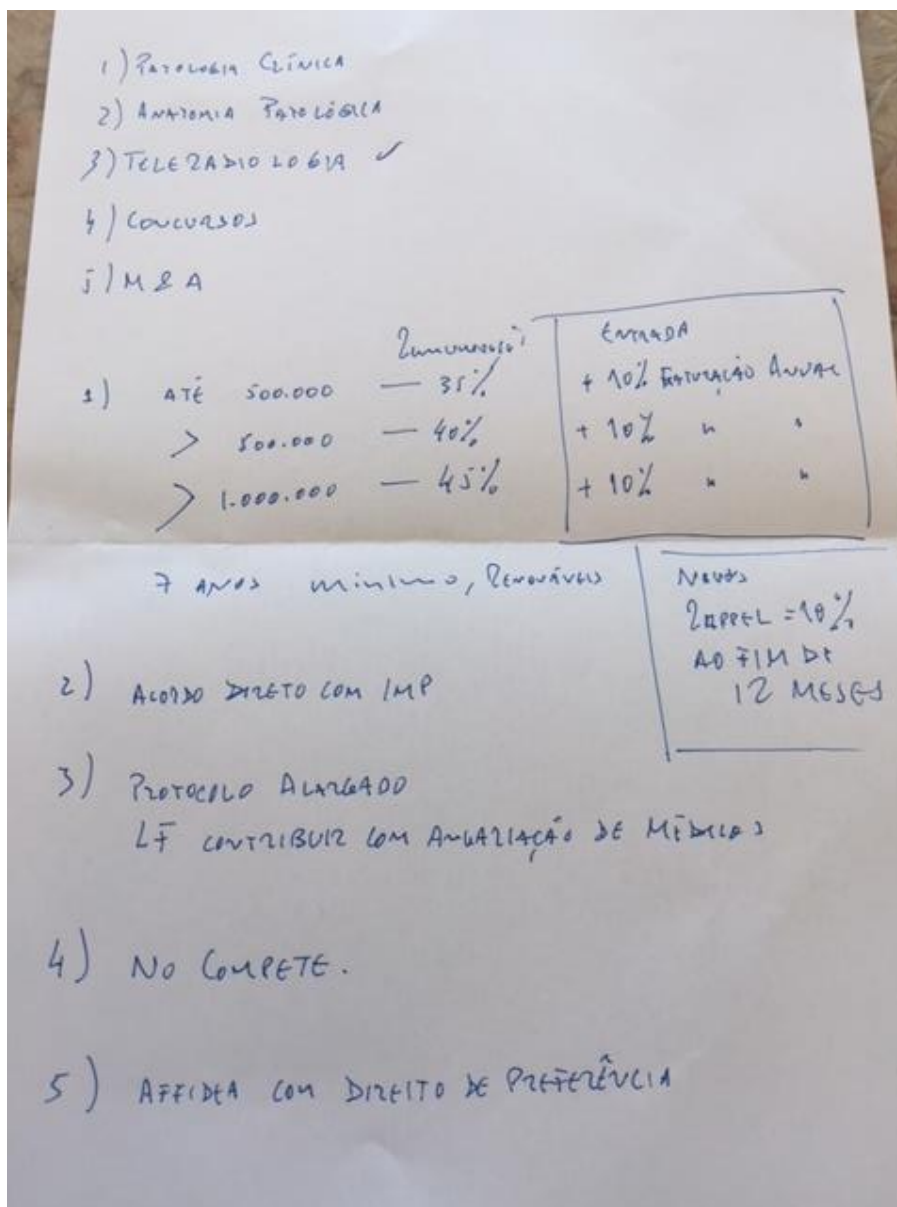 1) PATOLOGIA CLÍNICA
2) ANATOMIA PATOLÓGICA
3) TELERADIOLOGIA ✓
4) CONCURSOS
5) M & A
Remuneração
ENTRADA
1) ATÉ 500.000 — 35% + 10% FATURAÇÃO ANUAL
> 500.000 — 40% + 10% " "
> 1.000.000 — 45% + 10% " "
7 ANOS mínimo, RENOVÁVEIS
NOVOS
RAPPEL = 10%
AO FIM DE
12 MESES
2) ACORDO DIRETO COM IMP
3) PROTOCOLO ALARGADO
LF CONTRIBUIR COM ANGARIAÇÃO DE MÉDICOS
4) NO COMPETE.
5) AFFIDEA COM DIREITO DE PREFERÊNCIA